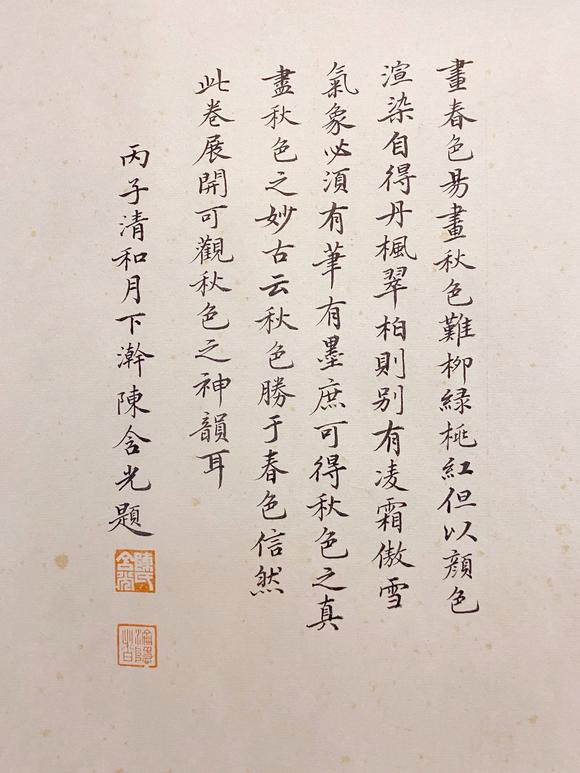 畫春色易畫秋色難柳綠桃紅但以顏色
渲染自得丹楓翠柏則別有凌霜傲雪
氣象必須有筆有墨庶可得秋色之真
盡秋色之妙古云秋色勝于春色信然
此卷展開可觀秋色之神韻耳
丙子清和月下澣陳含光題
陳氏含光